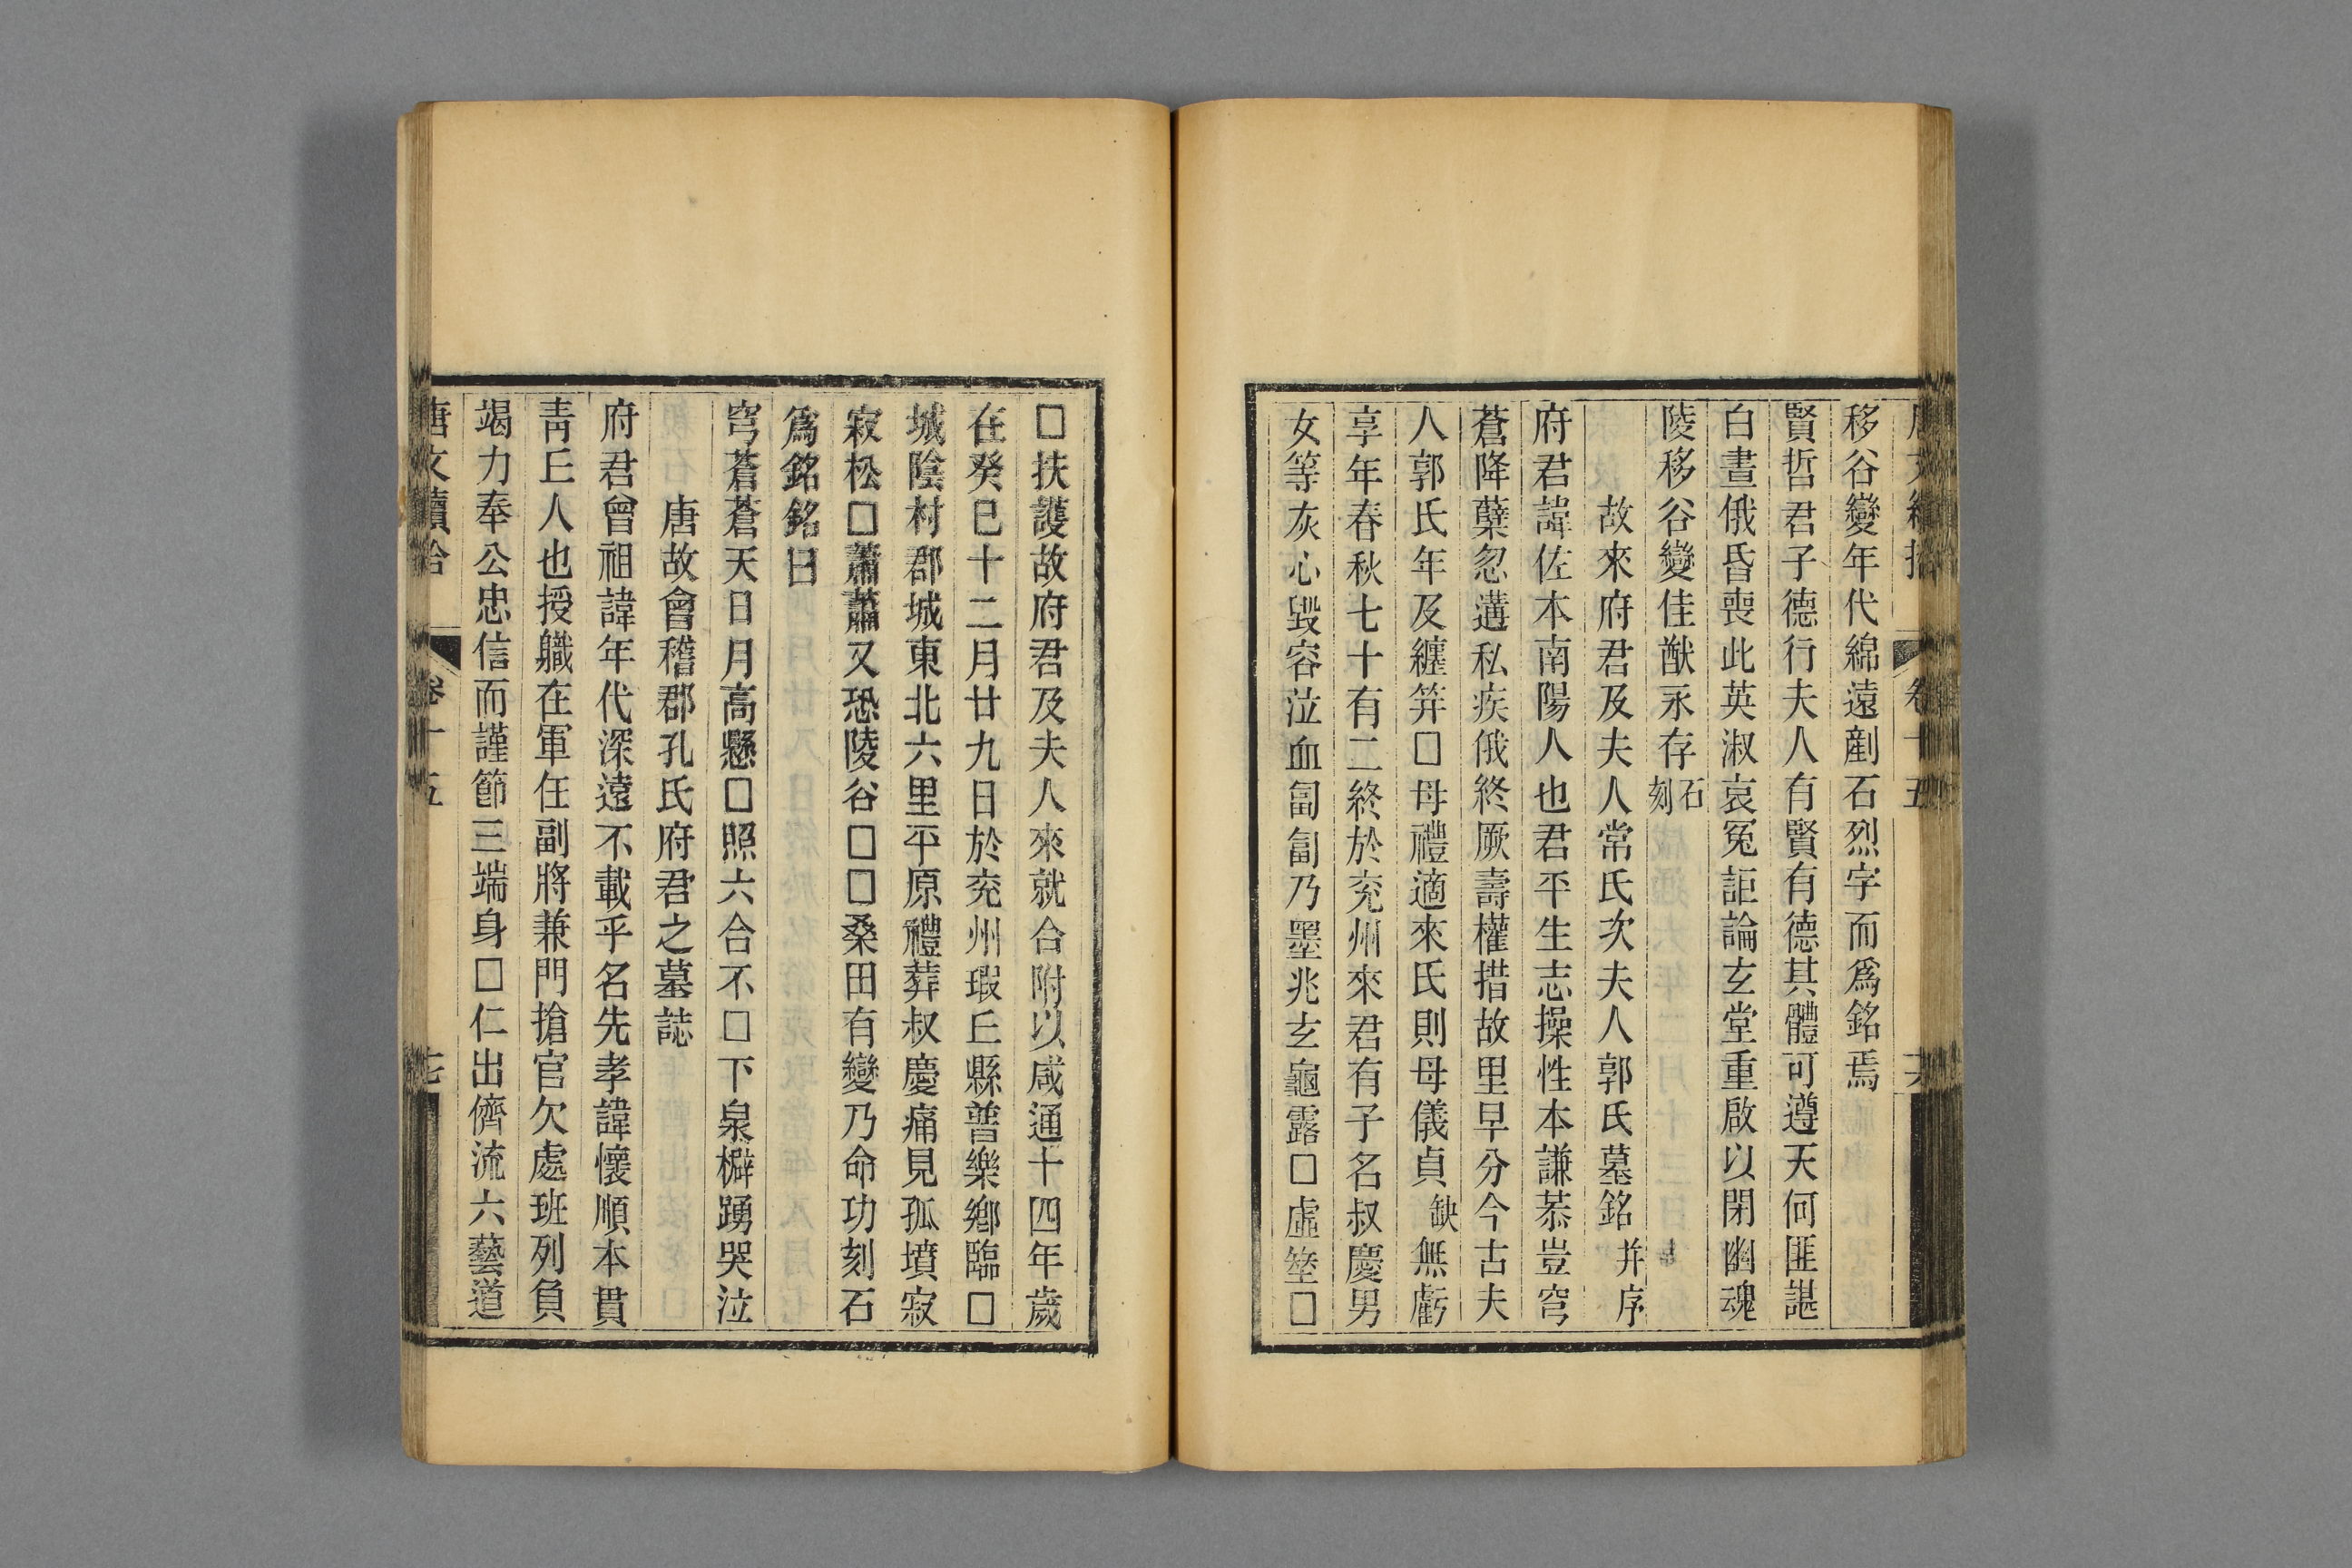 移谷變年代綿遠剷石烈字而爲銘焉
賢哲君子德行夫人有賢有德其體可遵天何匪諶
白晝俄昏喪此英淑哀冤詎論玄堂重啟以閉幽魂
陵移谷變佳猷永存石刻
故來府君及夫人常氏次夫人郭氏墓銘并序
府君諱佐本南陽人也君平生志操性本謙恭豈穹
蒼降蘖忽遘私疾俄終厥壽權措故里早分今古夫
人郭氏年及纏笄□母禮適來氏則母儀貞缺無虧
享年春秋七十有二終於兖州來君有子名叔慶男
女等灰心毀容泣血匐匐乃墨兆玄龜露□虛塋□
□扶護故府君及夫人來就合附以咸通十四年歲
在癸巳十二月廿九日於兖州瑕丘縣普樂鄉臨□
城陰村郡城東北六里平原禮葬叔慶痛見孤墳寂
寂松□蕭蕭又恐陵谷□□桑田有變乃命功刻石
爲銘銘曰
穹蒼蒼天日月高懸□照六合不□下泉擗踴哭泣
唐故會稽郡孔氏府君之墓誌
府君曾祖諱年代深遠不載乎名先孝諱懷順本貫
靑丘人也授軄在軍任副將兼門搶官欠處班列負
竭力奉公忠信而謹節三端身□仁出儕流六藝道
唐文續拾
卷十五
七